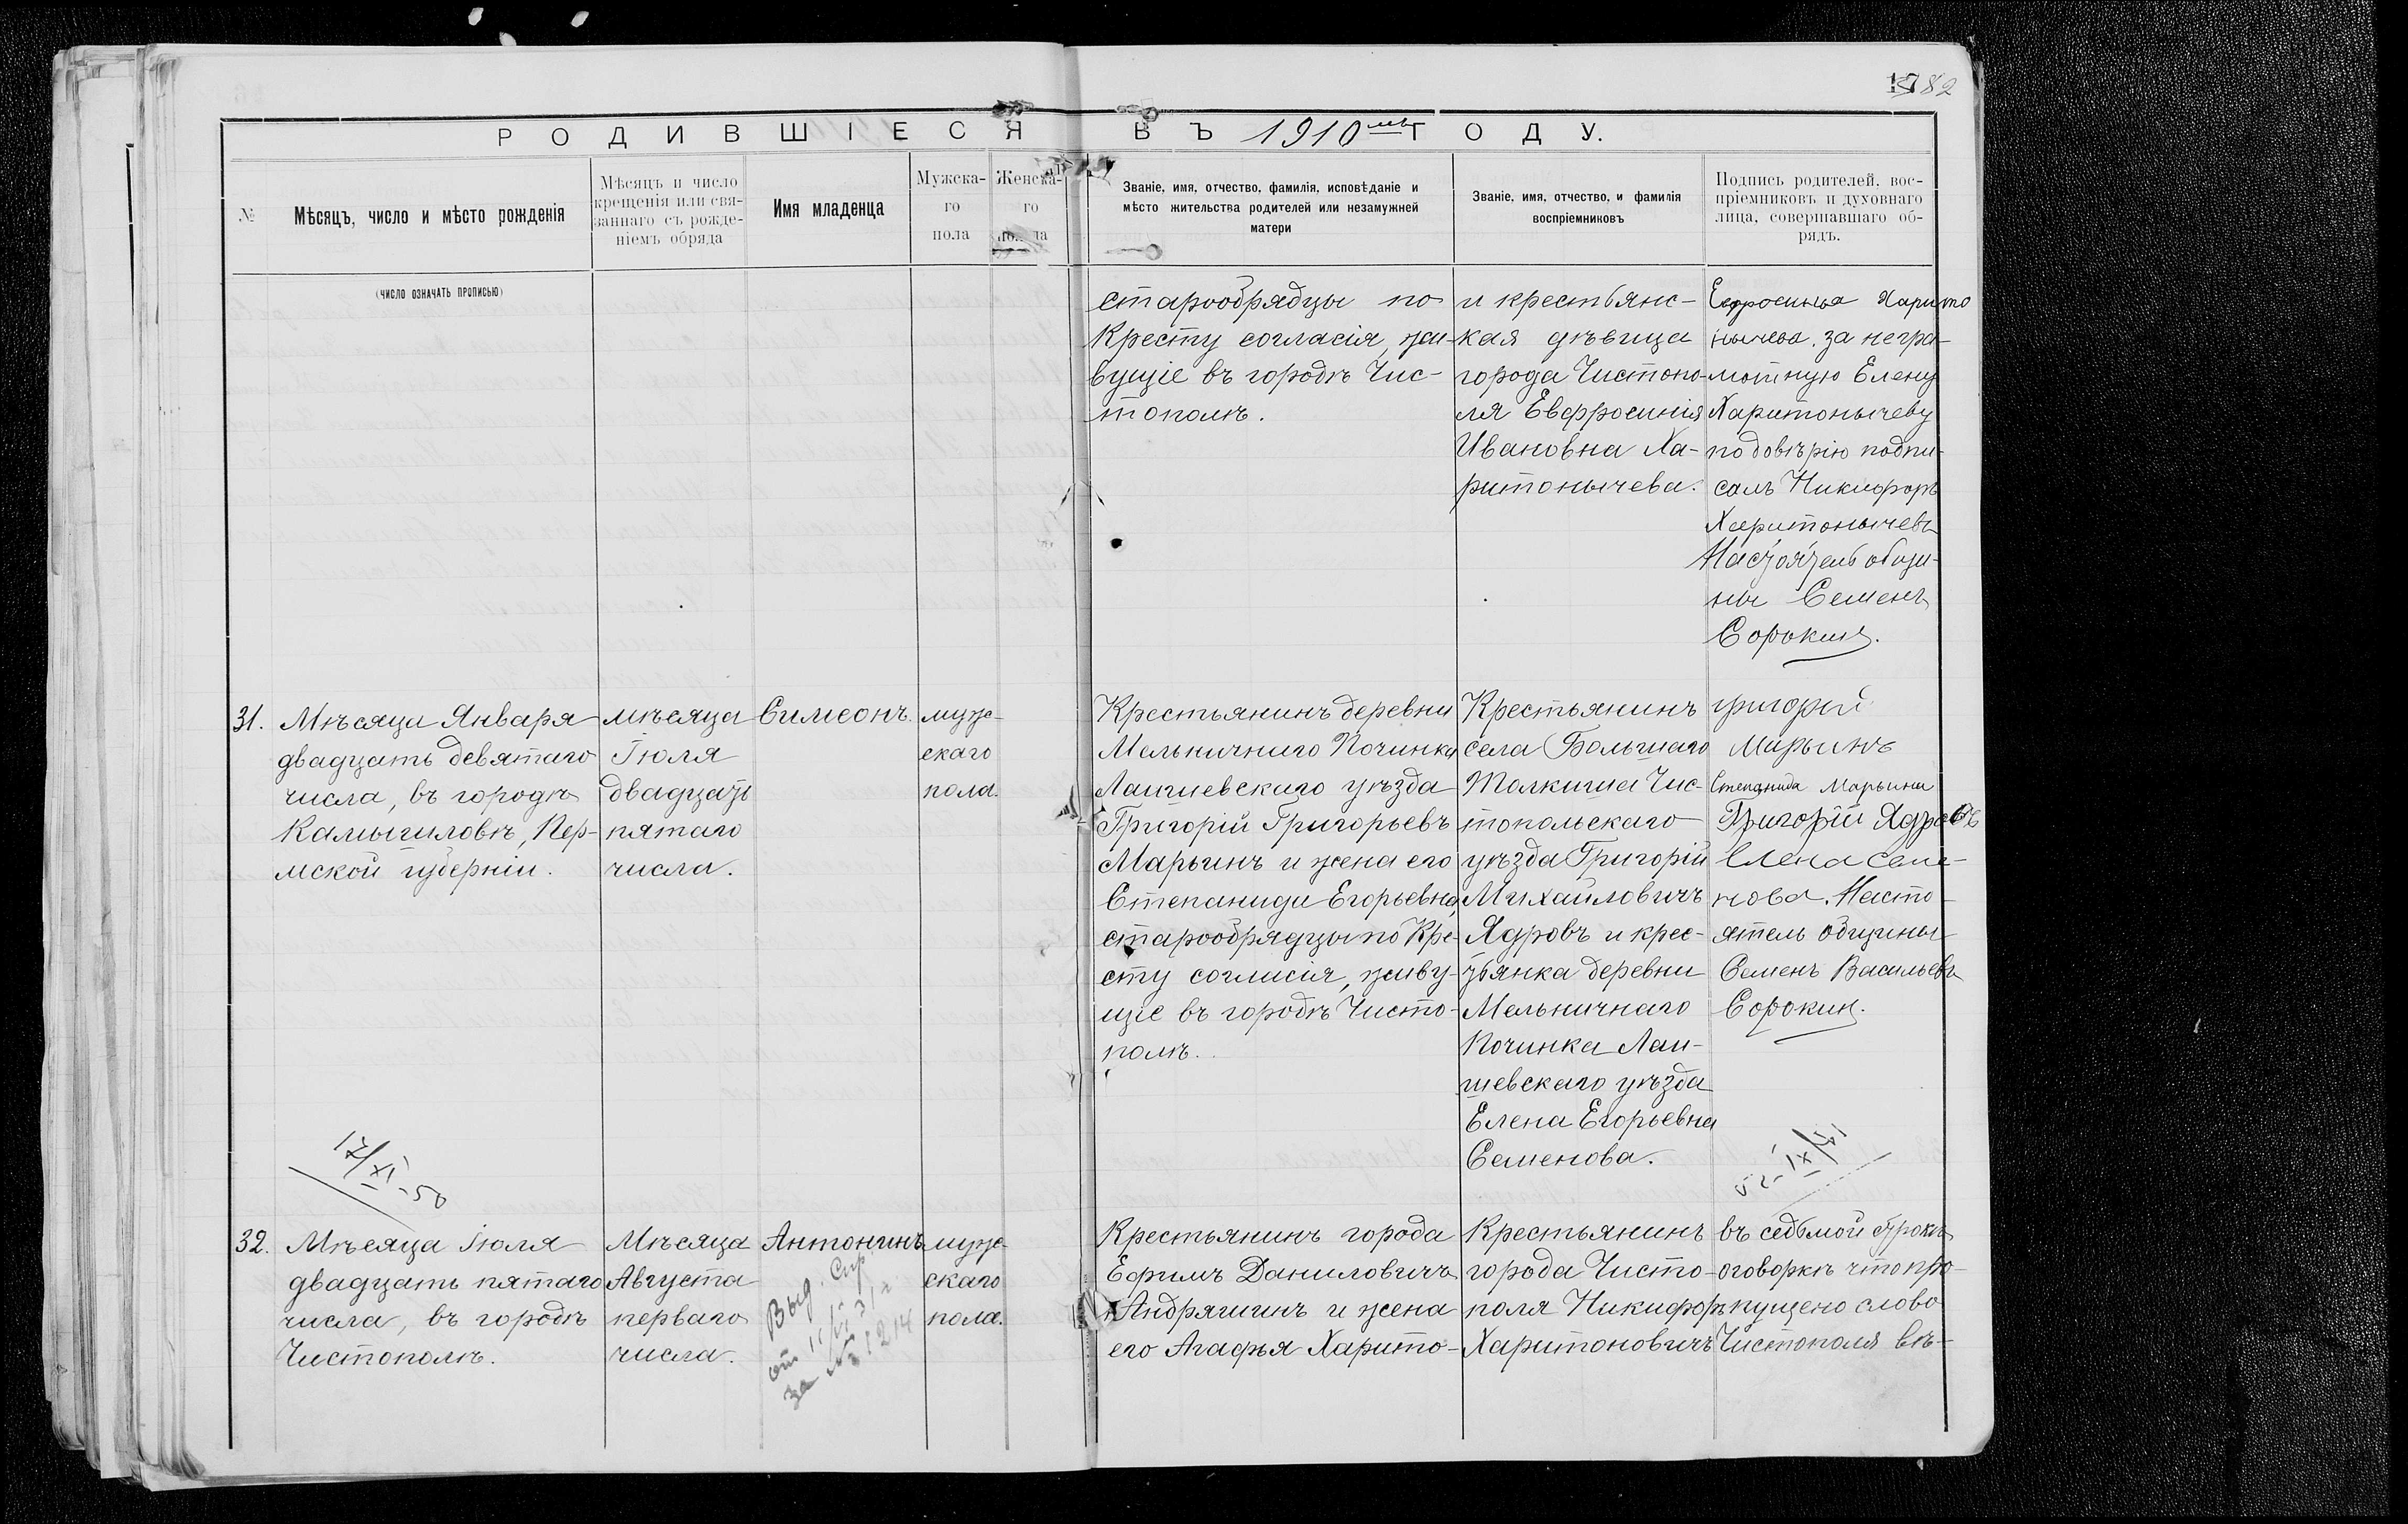 1782
РОДИВШІЕСЯ ВЪ 1910мъ ГОДУ.
№
Мѣсяцъ, число и мѣсто рожденія
Мѣсяцъ и число
крещенія или свя-
заннаго съ рожде-
ніемъ обряда
Имя младенца
Мужска-
го
пола
Женска-
го
пола
Званіе, имя, отчество, фамилія, исповѣданіе и
мѣсто жительства родителей или незамужней
матери
Званіе, имя, отчество, и фамилія
воспріемниковъ
Подпись родителей, вос-
пріемниковъ и духовнаго
лица, совершавшаго об-
рядъ.
(число означать прописью)
старообрядцы по
Кресту согласія, жи-
вущіе въ городѣ Чис-
тополѣ.
и крестьянс-
кая дѣвица
города Чистопо-
ля Евфросинія
Ивановна Ха-
ритонычева.
Ефросинья Харито
нычева. за негра-
мотную Елену
Харитонычеву
по довѣрію подпи-
салъ Никифоръ
Харитонычевъ
Настоятель общи-
ны Семенъ
Сорокин.
31.
Мѣсяца Января
двадцать девятаго
числа, въ городѣ
Камышловѣ, Пер-
мской губерніи.
мѣсяца
Іюля
двадцать
пятаго
числа.
Симеонъ.
муж-
скаго
пола.
Крестьянинъ деревни
Мельничнаго Починка
Лаишевскаго уѣзда
Григорій Григорьевъ
Марьинъ и жена его
Степанида Егорьевна,
старообрядцы по Кре-
сту согласія, живу-
щіе въ городѣ Чисто-
полѣ.
Крестьянинъ
села Большаго
Толкиша Чис-
топольскаго
уѣзда Григорій
Михайловичъ
Ядровъ и крес-
тьянка деревни
Мельничнаго
Починка Лаи-
шевскаго уѣзда
Елена Егорьевна
Семенова.
григорий
Марьинъ
Степанида Марьина
Григорій Ядровъ
Елена Семе-
нова. Насто-
ятель общины
Семенъ Васильевъ
Сорокин.
17/XI-50
32.
Мѣсяца Іюля
двадцать пятаго
числа, въ городѣ
Чистополѣ.
Мѣсяца
Августа
перваго
числа.
Антонинъ
Выд. Спр.
за № 1214
муж-
скаго
пола.
Крестьянинъ города
Ефимъ Даниловичъ
Андряшинъ и жена
его Агафья Харито-
Крестьянинъ
города Чисто-
поля Никифоръ
Харитоновичъ
въ седьмой строкѣ
оговоркѣ что про-
пущено слово
Чистополя вѣ-